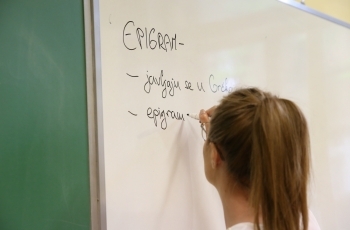 EPIGRAM-
- javljaju se u
- epigram